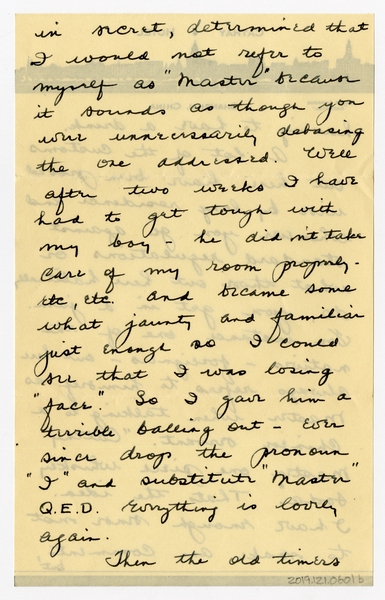 in secret, determined that
I would not refer to
myself as "Master" because
it sounds as though you
were unnecessarily debasing
the one addressed. Well
after two weeks I have
had to get tough with
my boy - he didn't take
care of my room properly -
etc, etc. and became some
what jaunty and familiar
just enough so I could
see that I was losing
"face". So I gave him a
terrible balling out - Ever
since drop the pronoun
"I" and substitute "Master"
Q.E.D. Everything is lovely
again.
Then the old timers
2019.121.0601b